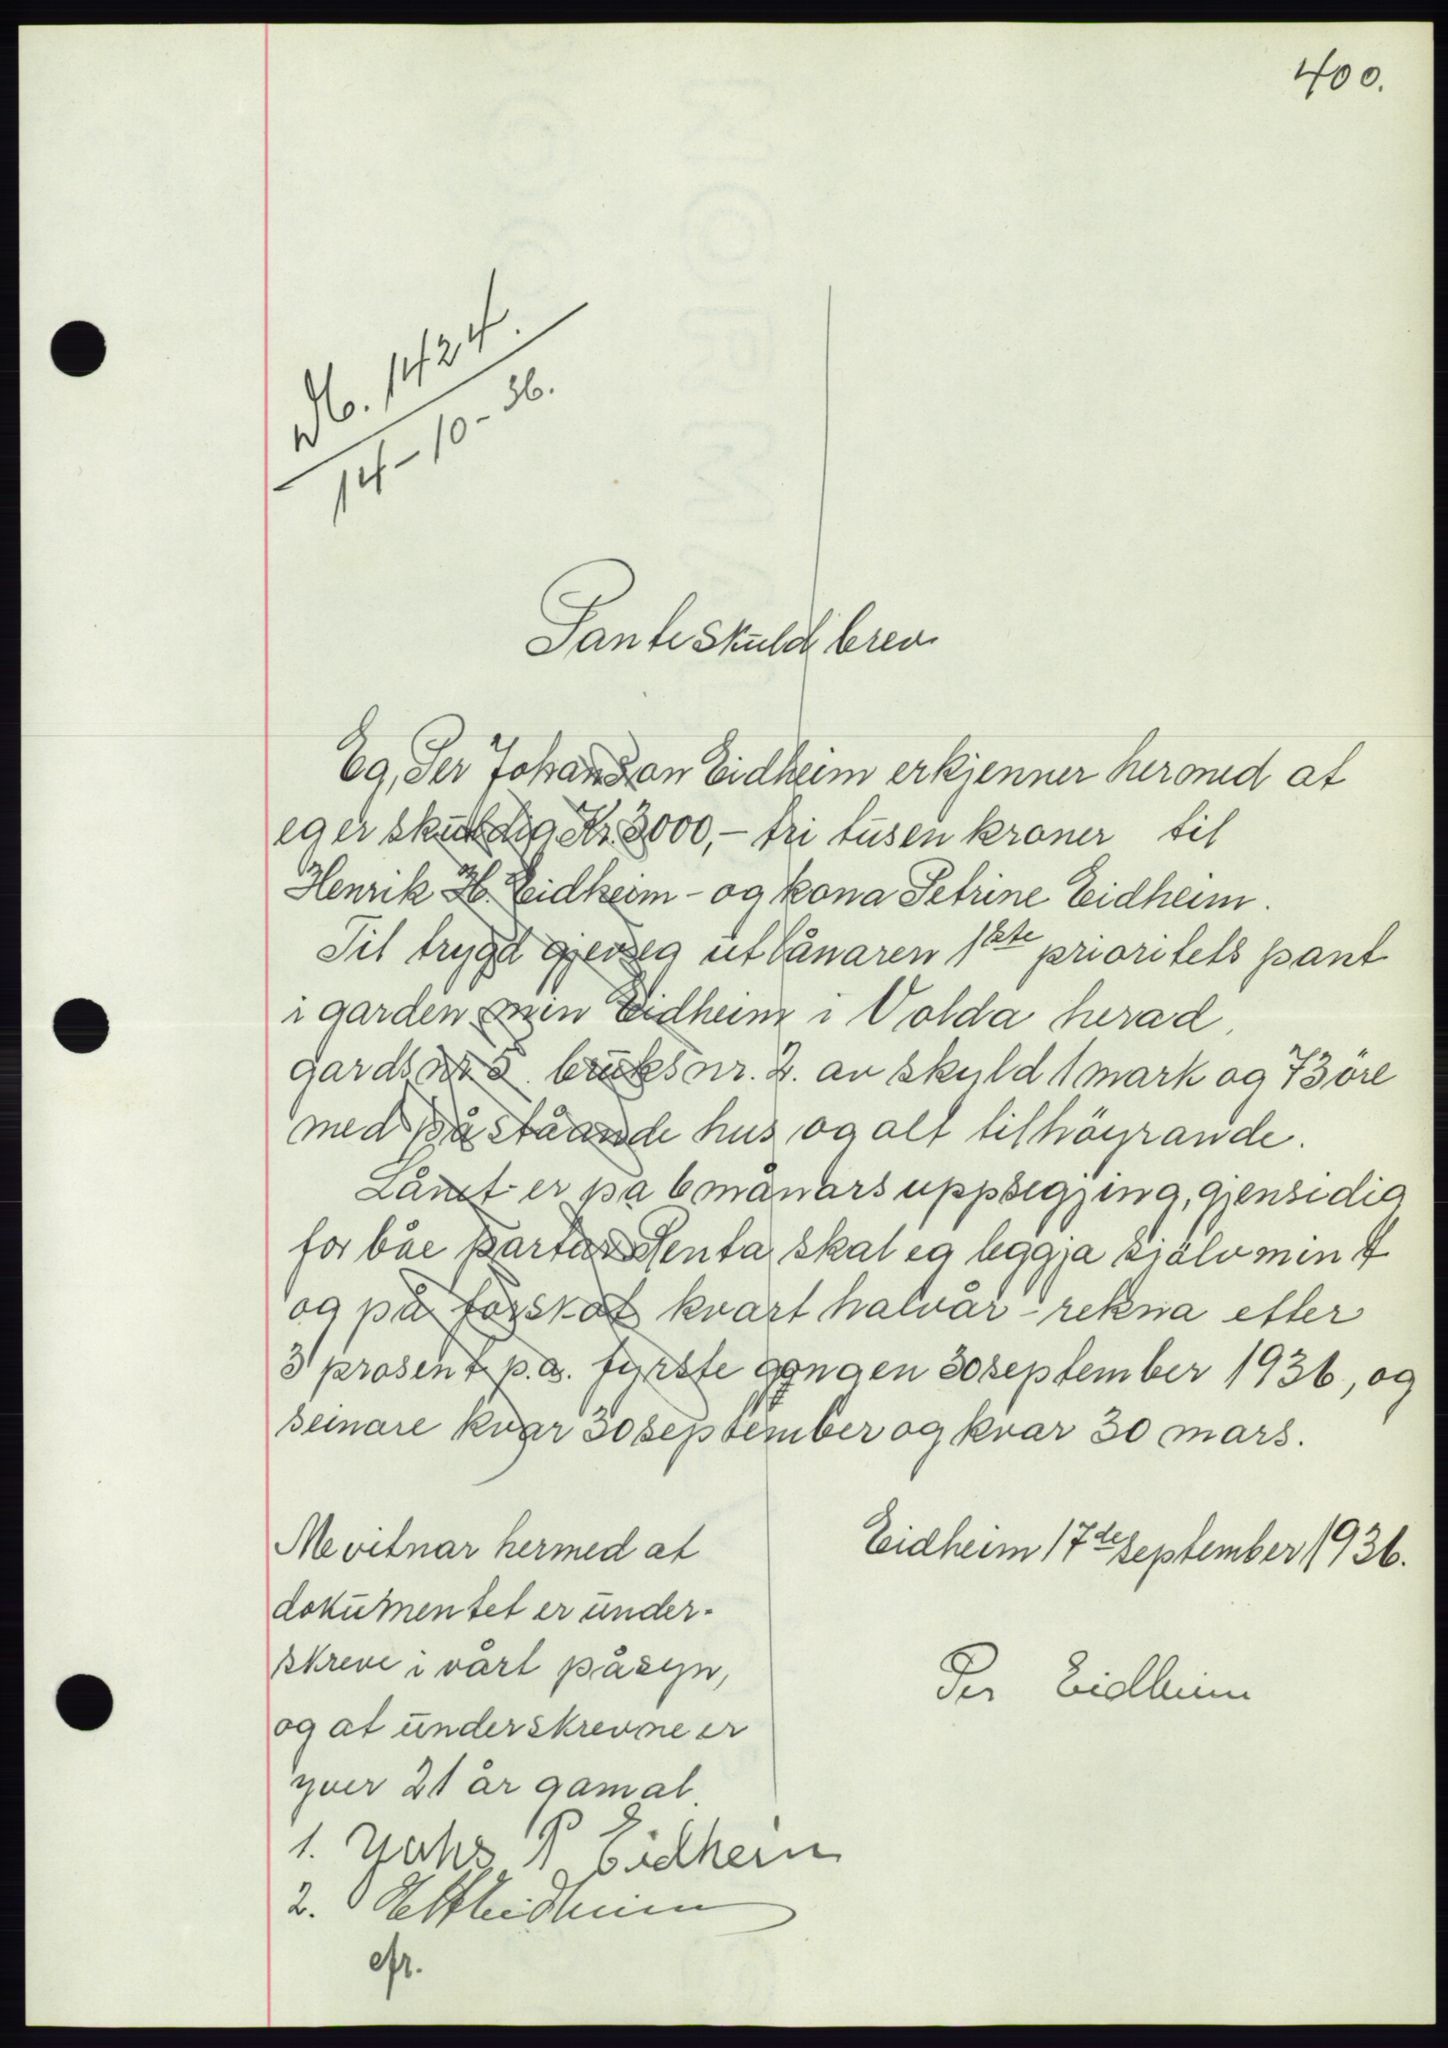 400.
No. 1424.
14-10-36.
Panteskuldbrev
Eg, Per Johanson Eidheim erkjenner hermed at
eg er skuldig Kr. 3000,- tri tusen kroner til
Henrik H. Eidheim - og kona Petrine Eidheim.
Til trygd gjev eg utlånaren 1ste prioritets pant
i garden min Eidheim i Volda herad,
gards nr. 5. bruks nr. 2. av skyld 1 mark og 73 öre
med påståande hus og alt tilhöyrande.
Lånet er på 6 månars uppsegjing, gjensidig
for båe partar Renta skal eg leggja sjölvmint
og på forskot kvart halvår - rekna efter
3 prosent p.a. fyrste gongen 30 september 1936, og
seinare kvar 30 september og kvar 30 mars.
Eidheim 17de september 1936.
Per Eidheim
Me vitnar hermed at
dokumentet er under-
skreve i vårt påsyn,
og at underskrevne er
yver 21 år gamal.
1. P Eidheim
2. Eidheim